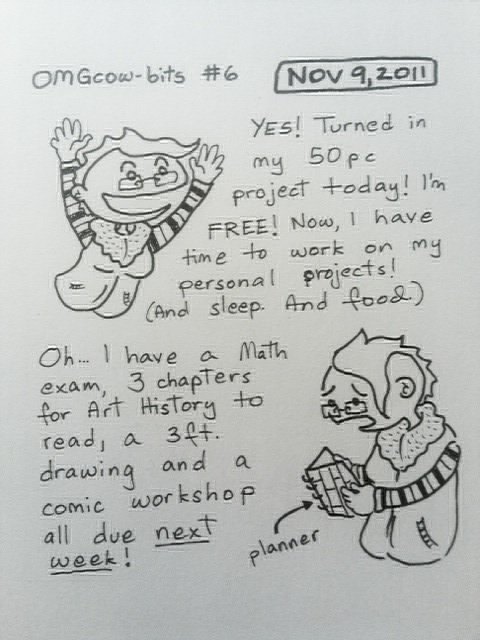 OMGcow-bits #6
NOV 9, 2011
YES! Turned in
my 50pc
project today! I'm
FREE! Now, I have
time to work on my
personal projects!
(And sleep. And food.)
Oh... I have a Math
exam, 3 chapters
for Art History to
read, a 3ft.
drawing and a
comic workshop
all due next
week!
planner